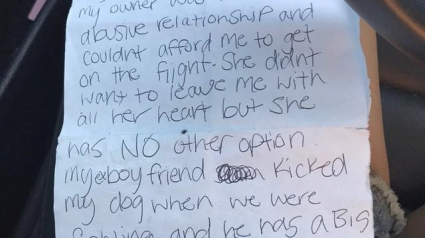 my owner was
abusive relationship and
couldnt afford me to get
on the flight. She didnt
want to leave me with
all her heart but she
has NO other option
my exboy friend kicked
my dog when we were
and he has a BIG